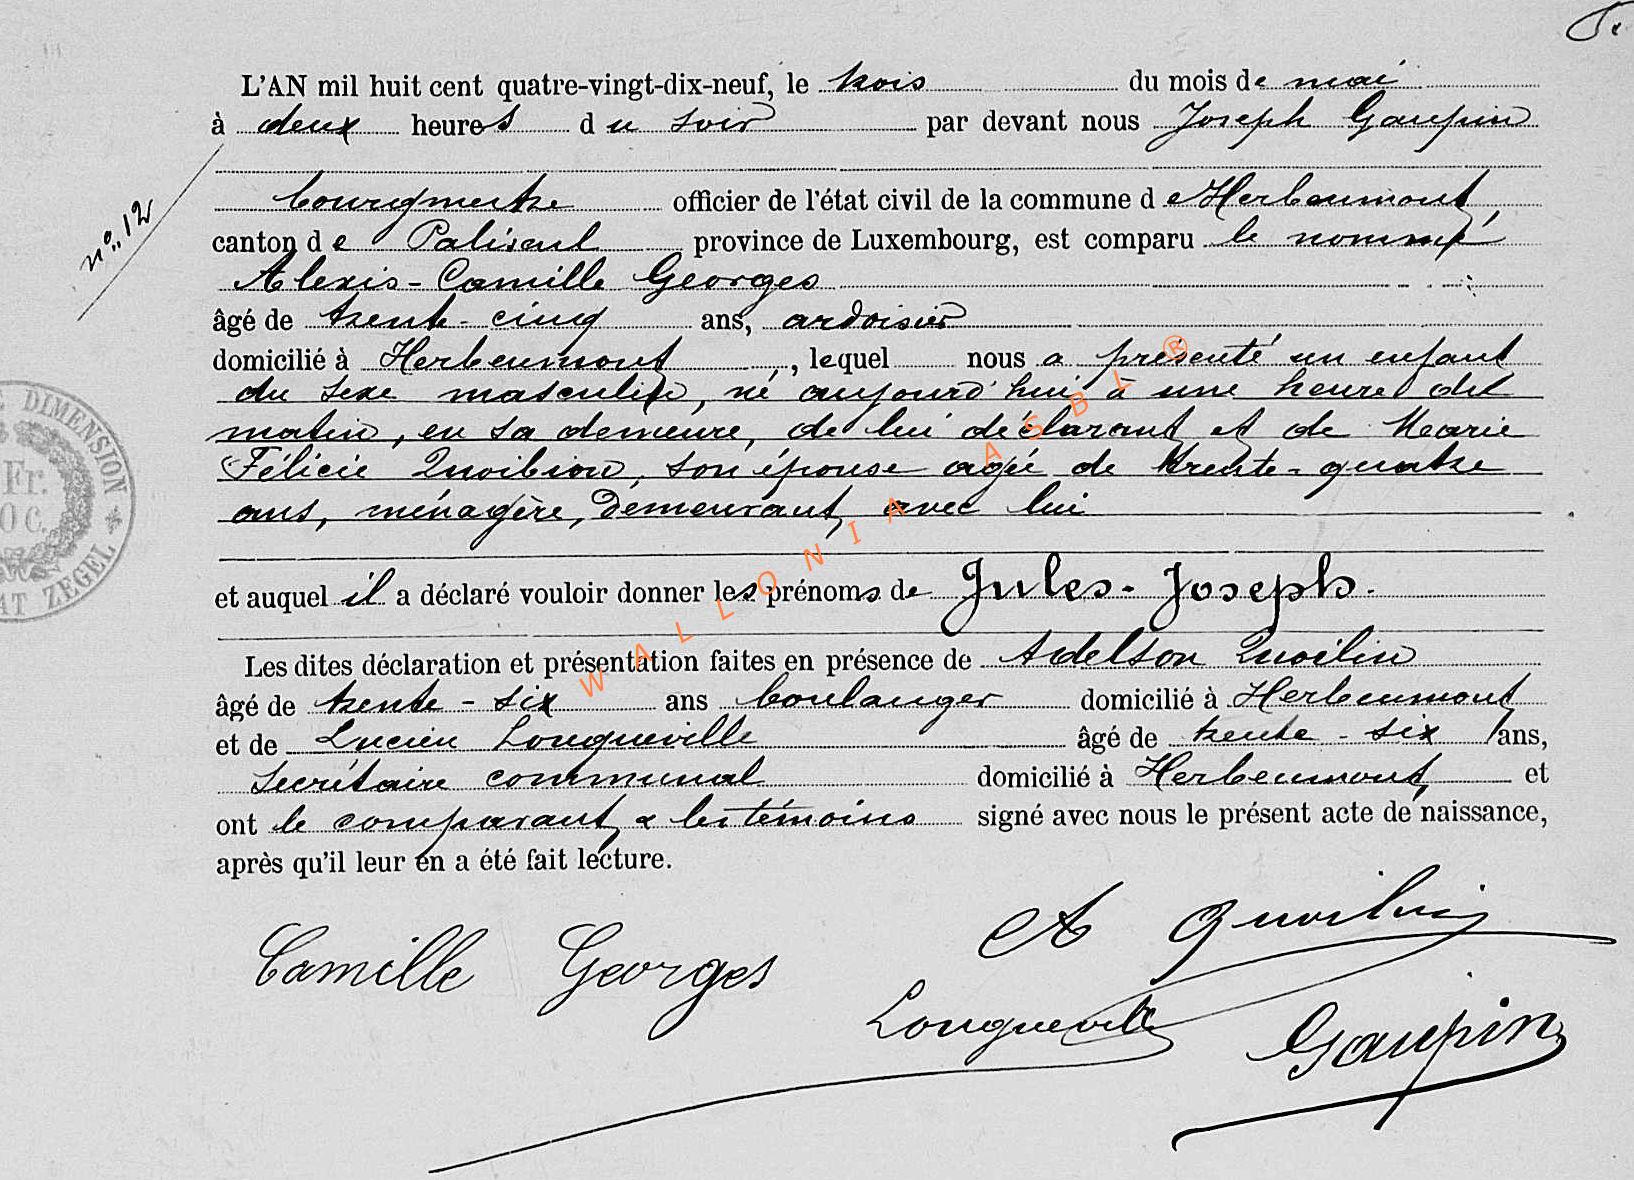 L'AN mil huit cent quatre-vingt-dix-neuf, le trois du mois de mai
à deux heures du soir par devant nous Joseph Gaupin
bourgmestre officier de l'état civil de la commune de Herbeumont,
n° 12
canton de Paliseul province de Luxembourg, est comparu le nommé
Alexis-Camille Georges
âgé de trente-cinq ans, ardoisier
domicilié à Herbeumont, lequel nous a présenté un enfant
du sexe masculin, né aujourd'hui à une heure du
matin, en sa demeure, de lui déclarant et de Marie
Félicie Quoibion, son épouse agée de trente-quatre
ans, ménagère, demeurant avec lui
et auquel il a déclaré vouloir donner les prénoms de Jules-Joseph.
Les dites déclaration et présentation faites en présence de Adelson Quoilin
âgé de trente-six ans boulanger domicilié à Herbeumont
et de Lucien Longueville âgé de trente-six ans,
secrétaire communal domicilié à Herbeumont, et
ont le comparant & les témoins signé avec nous le présent acte de naissance,
après qu'il leur en a été fait lecture.
Camille Georges
A Quoilin
Longueville
Gaupin
DIMENSION
Fr.
C.
ZEGEL
WALLONIA ASBL ®